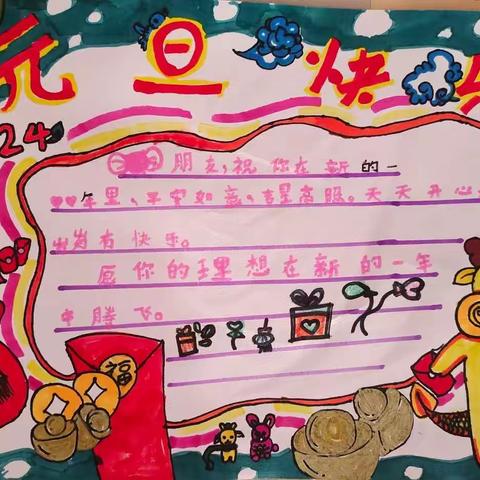 元旦快乐
24
朋友,祝你在新的一
年里、平安如意、吉星高照。天天开心
岁岁有快乐。
愿你的理想在新的一年
中腾飞。
福